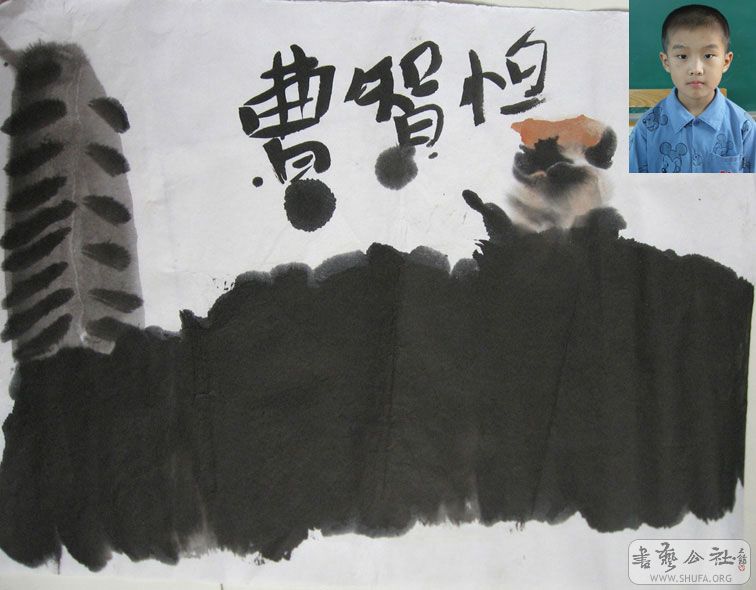 曹智怛
書藝公社
WWW.SHUFA.ORG